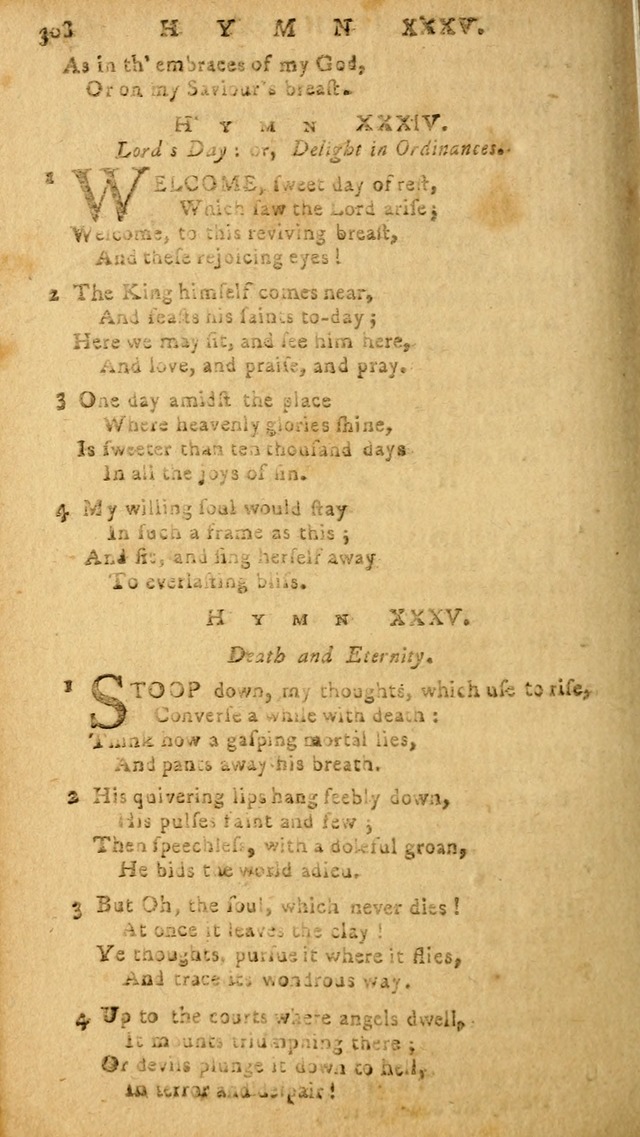 308 HYMN XXXV.
As in th' embraces of my God,
Or on my Saviour's breaſt.
HYMN XXXIV.
Lord s Day : or, Delight in Ordinances.
1 WELCOME, ſweet day of reſt,
Which ſaw the Lord ariſe;
Welcome, to this reviving breaſt,
And theſe rejoicing eyes!
2 The King himſelf comes near,
And feaſts his ſaints to-day;
Here we may ſit, and ſee him here,
And love, and praiſe, and pray.
3 One day amidſt the place
Where heavenly glories ſhine,
Is ſweeter than ten thouſand days
In all the joys of ſin.
4 My willing ſoul would ſtay
In ſuch a frame as this;
And ſit, and ſing herſelf away
To everlaſting bliſs.
HYMN XXXV.
Death and Eternity.
1 STOOP down, my thoughts, which uſe to riſe,
Converſe a while with death:
Think how a gaſping mortal lies,
And pants away his breath.
2 His quivering lips hang feebly down,
His pulſes faint and few;
Then ſpeechleſs, with a doleful groan,
He bids the world adieu.
3 But Oh, the ſoul, which never dies!
At once it leaves the clay!
Ye thoughts, purſue it where it flies,
And trace its wondrous way.
4 Up to the courts where angels dwell,
It mounts triumphing there;
Or devils plunge it down to hell,
In terror and deſpair!